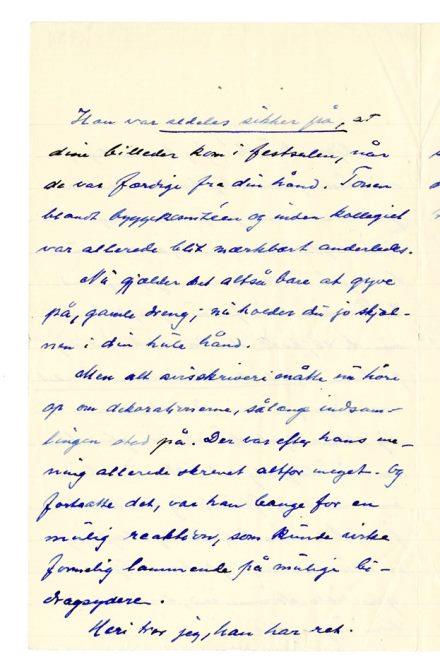 Han var aldeles sikker på, at
dine billeder kom i festsalen, når
de var færdige fra din hånd. Tonen
blandt byggekomitéen og inden kollegiet
var allerede blit mærkbart anderledes.
Nu gjælder det altså bare at gyve
på, gamle dreng; nu holder du jo skjæb-
nen i din hule hånd.
Men alt avisskriveri måtte nu höre
op om dekorationerne, sålænge indsam-
lingen stod på. Der var efter hans me-
ning allerede skrevet altfor meget. Og
fortsatte det, var han bange for en
mulig reaktion, som kunde virke
formelig lammende på mulige bi-
dragsydere.
Heri tror jeg, han har ret.